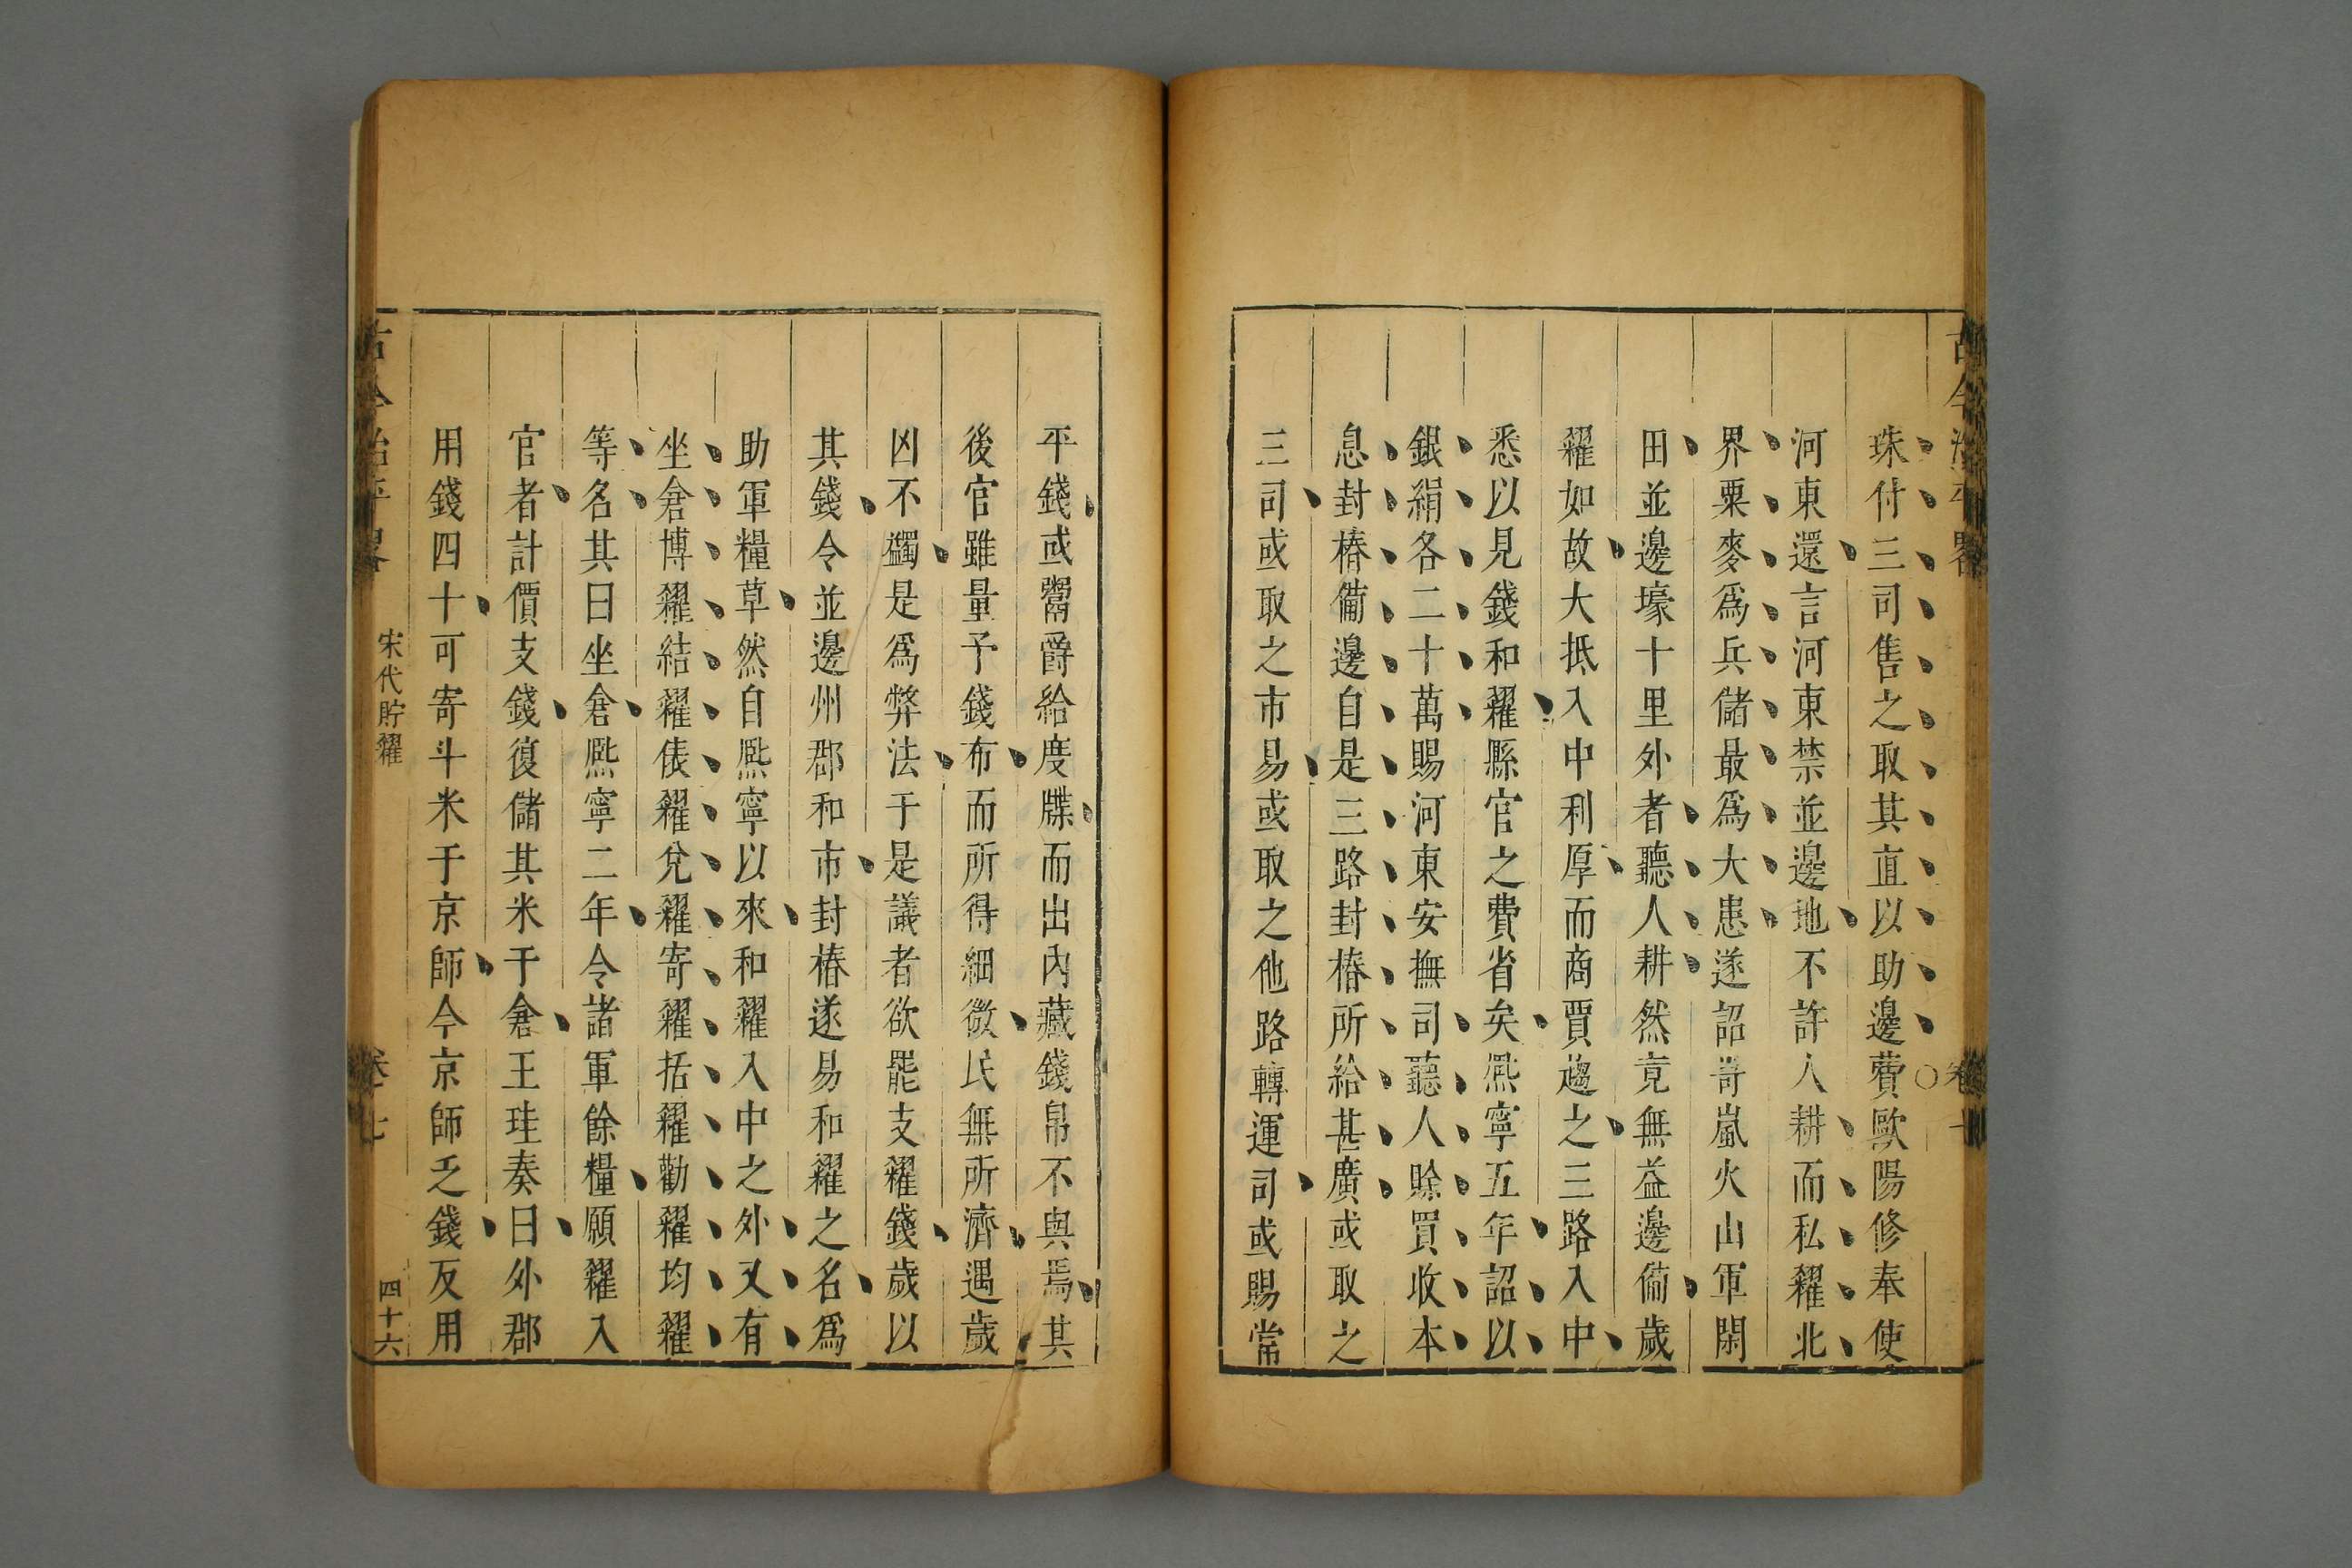 古今治平畧
珠付三司售之取其直以助邊費○歐陽修奉使
河東還言河東禁並邊地不許人耕而私糴北
界粟麥爲兵儲最爲大患遂詔岢嵐火山軍閑
田並邊壕十里外者聽人耕然竟無益邊備歲
糴如故大抵入中利厚而商賈趨之三路入中
悉以見錢和糴縣官之費省矣熙寧五年詔以
銀絹各二十萬賜河東安撫司聽人賒買收本
息封樁備邊自是三路封樁所給甚廣或取之
三司或取之市易或取之他路轉運司或賜常
平錢或鬻爵給度牒而出內藏錢帛不與焉其
後官雖量予錢布而所得細微民無所濟遇歲
凶不蠲是爲弊法于是議者欲罷支糴錢歲以
其錢令並邊州郡和市封樁遂易和糴之名爲
助軍糧草然自熙寧以來和糴入中之外又有
坐倉博糴結糴俵糴兌糴寄糴括糴勸糴均糴
等名其曰坐倉熙寧二年令諸軍餘糧願糴入
官者計價支錢復儲其米于倉王珪奏曰外郡
用錢四十可寄斗米于京師今京師乏錢反用
古今治平畧
宋代貯糴
卷七
四十六